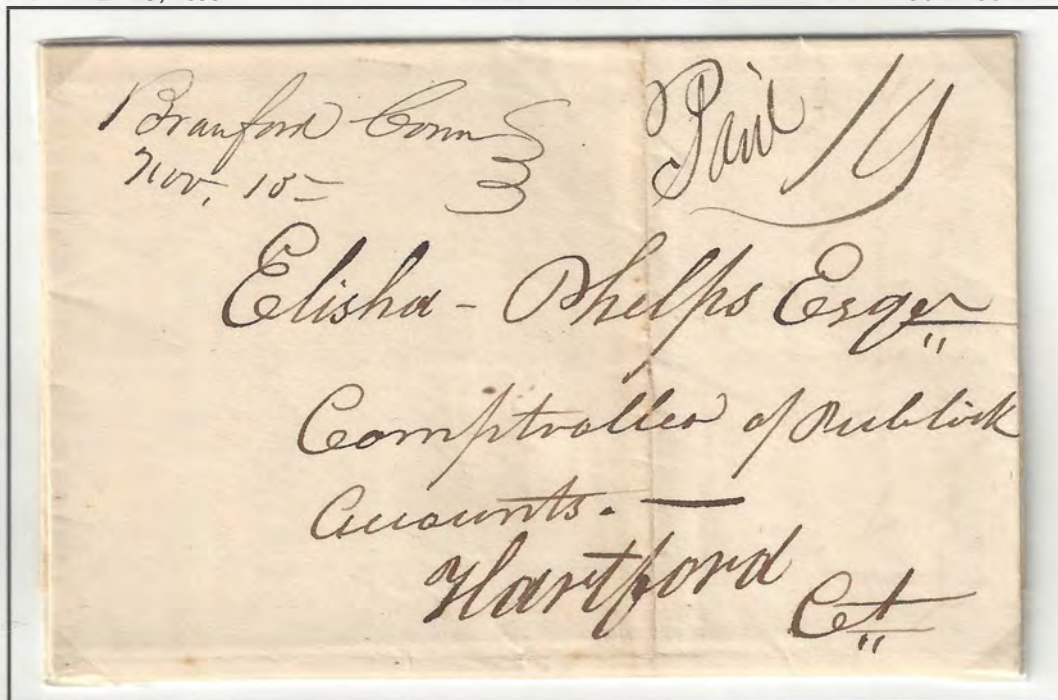 Branford Conn
Nov, 15
Paid 19
Elisha - Phelps Esqr
Comptroller of Publick
Accounts. —
Hartford
Ct